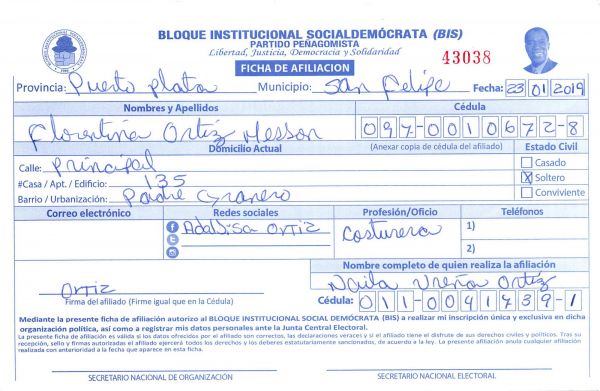 BLOQUE INSTITUCIONAL SOCIALDEMÓCRATA (BIS)
PARTIDO PEÑAGOMISTA
Libertad, Justicia, Democracia y Solidaridad
43038
FICHA DE AFILIACION
Provincia: Puerto plata Municipio: San Felipe Fecha: 23 01 2019
Nombres y Apellidos Cédula
Florentina Ortiz Messon 097-0010672-8
Domicilio Actual (Anexar copia de cédula del afiliado) Estado Civil
Calle: Principal Casado
#Casa / Apt. / Edificio: 135 X Soltero
Barrio / Urbanización: Padre Granero Conviviente
Correo electrónico Redes sociales Profesión/Oficio Teléfonos
Adalisa Ortiz Costurera 1)
2)
Nombre completo de quien realiza la afiliación
Ortiz Naila Ureña Ortiz
Firma del afiliado (Firme igual que en la Cédula) Cédula: 011-0041439-1
Mediante la presente ficha de afiliación autorizo al BLOQUE INSTITUCIONAL SOCIAL DEMÓCRATA (BIS) a realizar mi inscripción única y exclusiva en dicha
organización política, así como a registrar mis datos personales ante la Junta Central Electoral.
La presente ficha de afiliación es válida si los datos ofrecidos por el afiliado son correctos, las declaraciones veraces y si el afiliado tiene el disfrute de sus derechos civiles y políticos. Tras su
recepción, sello y firmas autorizadas el afiliado ejercerá todos los derechos y los deberes estatutariamente sancionados, de acuerdo a la ley. La presente afiliación anula cualquier afiliación
realizada con anterioridad a la fecha que aparece en esta ficha.
SECRETARIO NACIONAL DE ORGANIZACIÓN SECRETARIO NACIONAL ELECTORAL